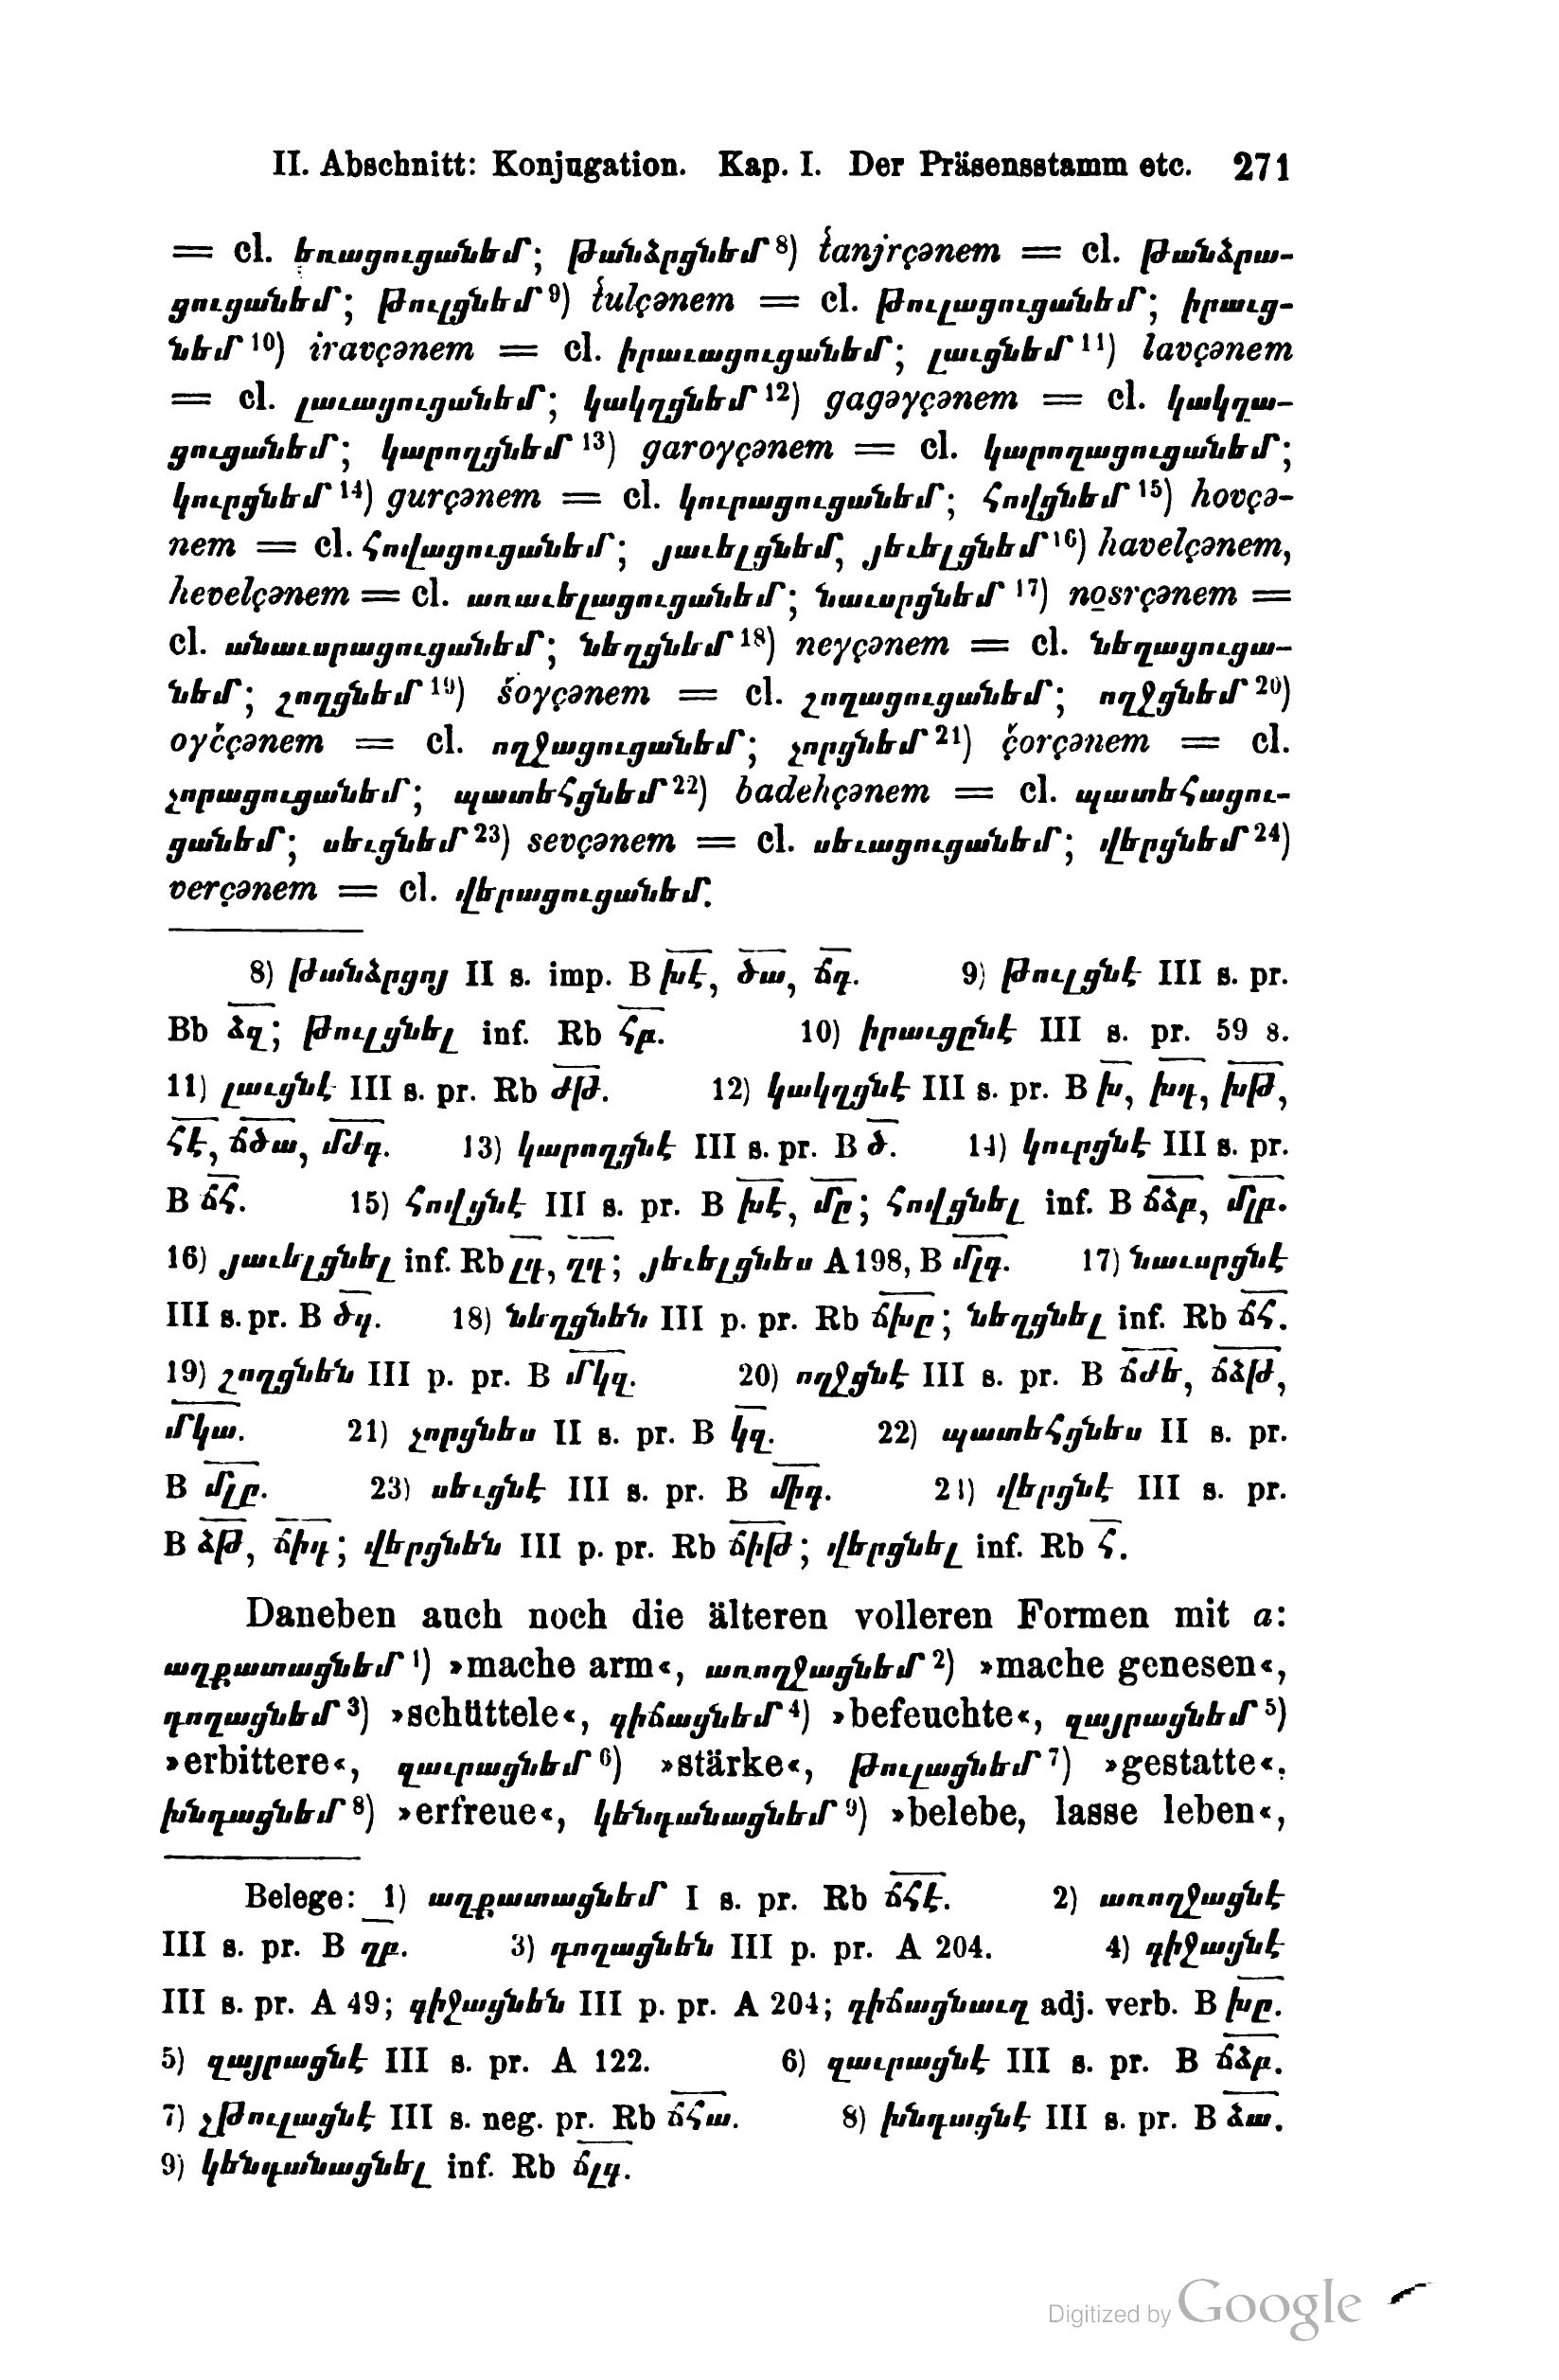 II. Abschnitt: Konjugation. Kap. I. Der Präsensstamm etc. 271
= cl. եռացուցանեմ; թանձրցնեմ⁸) t῾anjrçənem = cl. թանձրա-
ցուցանեմ; թուլցնեմ⁹) t῾ulçənem = cl. թուլացուցանեմ; իրաւց-
նեմ¹⁰) iravçənem = cl. իրաւացուցանեմ; լաւցնեմ¹¹) lavçənem
= cl. լաւացուցանեմ; կակղցնեմ¹²) gagəγçənem = cl. կակղա-
ցուցանեմ; կարողցնեմ¹³) garoγçənem = cl. կարողացուցանեմ;
կուրցնեմ¹⁴) gurçənem = cl. կուրացուցանեմ; հովցնեմ¹⁵) hovçə-
nem = cl. հովացուցանեմ; յաւելցնեմ, յեւելցնեմ¹⁶) havelçənem,
hevelçənem = cl. առաւելացուցանեմ; նաւսրցնեմ¹⁷) no̱srçənem =
cl. անաւսրացուցանեմ; նեղցնեմ¹⁸) neγçənem = cl. նեղացուցա-
նեմ; շողցնեմ¹⁹) šoγçənem = cl. շողացուցանեմ; ողջցնեմ²⁰)
oγčçənem = cl. ողջացուցանեմ; չորցնեմ²¹) č̣orçənem = cl.
չորացուցանեմ; պատեհցնեմ²²) badehçənem = cl. պատեհացու-
ցանեմ; սեւցնեմ²³) sevçənem = cl. սեւացուցանեմ; վերցնեմ²⁴)
verçənem = cl. վերացուցանեմ.
8) թանձրցոյ II s. imp. B խէ, ծա, ճդ. 9) թուլցնէ III s. pr.
Bb ձզ; թուլցնել inf. Rb հբ. 10) իրաւցընէ III s. pr. 59 s.
11) լաւցնէ III s. pr. Rb ժթ. 12) կակղցնէ III s. pr. B խ, խդ, խթ,
հէ, ճծա, մժգ. 13) կարողցնէ III s. pr. B ծ. 14) կուրցնէ III s. pr.
B ճհ. 15) հովցնէ III s. pr. B խէ, մը; հովցնել inf. B ճձբ, մլբ.
16) յաւելցնել inf. Rb լդ, ղդ; յեւելցնես A 198, B մլգ. 17) նաւսրցնէ
III s. pr. B ծգ. 18) նեղցնեն III p. pr. Rb ճխը; նեղցնել inf. Rb ճհ.
19) շողցնեն III p. pr. B մկզ. 20) ողջցնէ III s. pr. B ճժե, ճձթ,
մկա. 21) չորցնես II s. pr. B կզ. 22) պատեհցնես II s. pr.
B մլբ. 23) սեւցնէ III s. pr. B միգ. 24) վերցնէ III s. pr.
B ձթ, ճիդ; վերցնեն III p. pr. Rb ճիթ; վերցնել inf. Rb հ.
Daneben auch noch die älteren volleren Formen mit a:
աղքատացնեմ¹) »mache arm«, առողջացնեմ²) »mache genesen«,
դողացնեմ³) »schüttele«, գիճացնեմ⁴) »befeuchte«, զայրացնեմ⁵)
»erbittere«, զաւրացնեմ⁶) »stärke«, թուլացնեմ⁷) »gestatte«,
խնդացնեմ⁸) »erfreue«, կենդանացնեմ⁹) »belebe, lasse leben«,
Belege: 1) աղքատացնեմ I s. pr. Rb ճհէ. 2) առողջացնէ
III s. pr. B ղբ. 3) դողացնեն III p. pr. A 204. 4) գիջացնէ
III s. pr. A 49; գիջացնեն III p. pr. A 204; գիճացնաւղ adj. verb. B խը.
5) զայրացնէ III s. pr. A 122. 6) զաւրացնէ III s. pr. B ճձբ.
7) չթուլացնէ III s. neg. pr. Rb ճհա. 8) խնդացնէ III s. pr. B ձա.
9) կենդանացնել inf. Rb ճլգ.
Digitized by Google